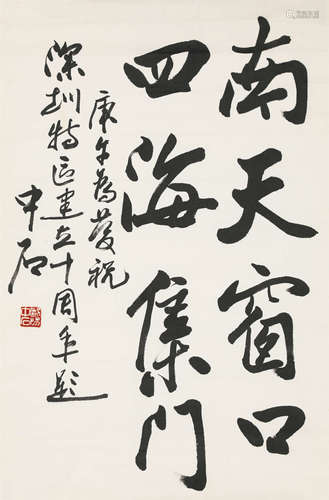 南天窗口
四海集门
庚午为庆祝
深圳特区建立十周年题
中石